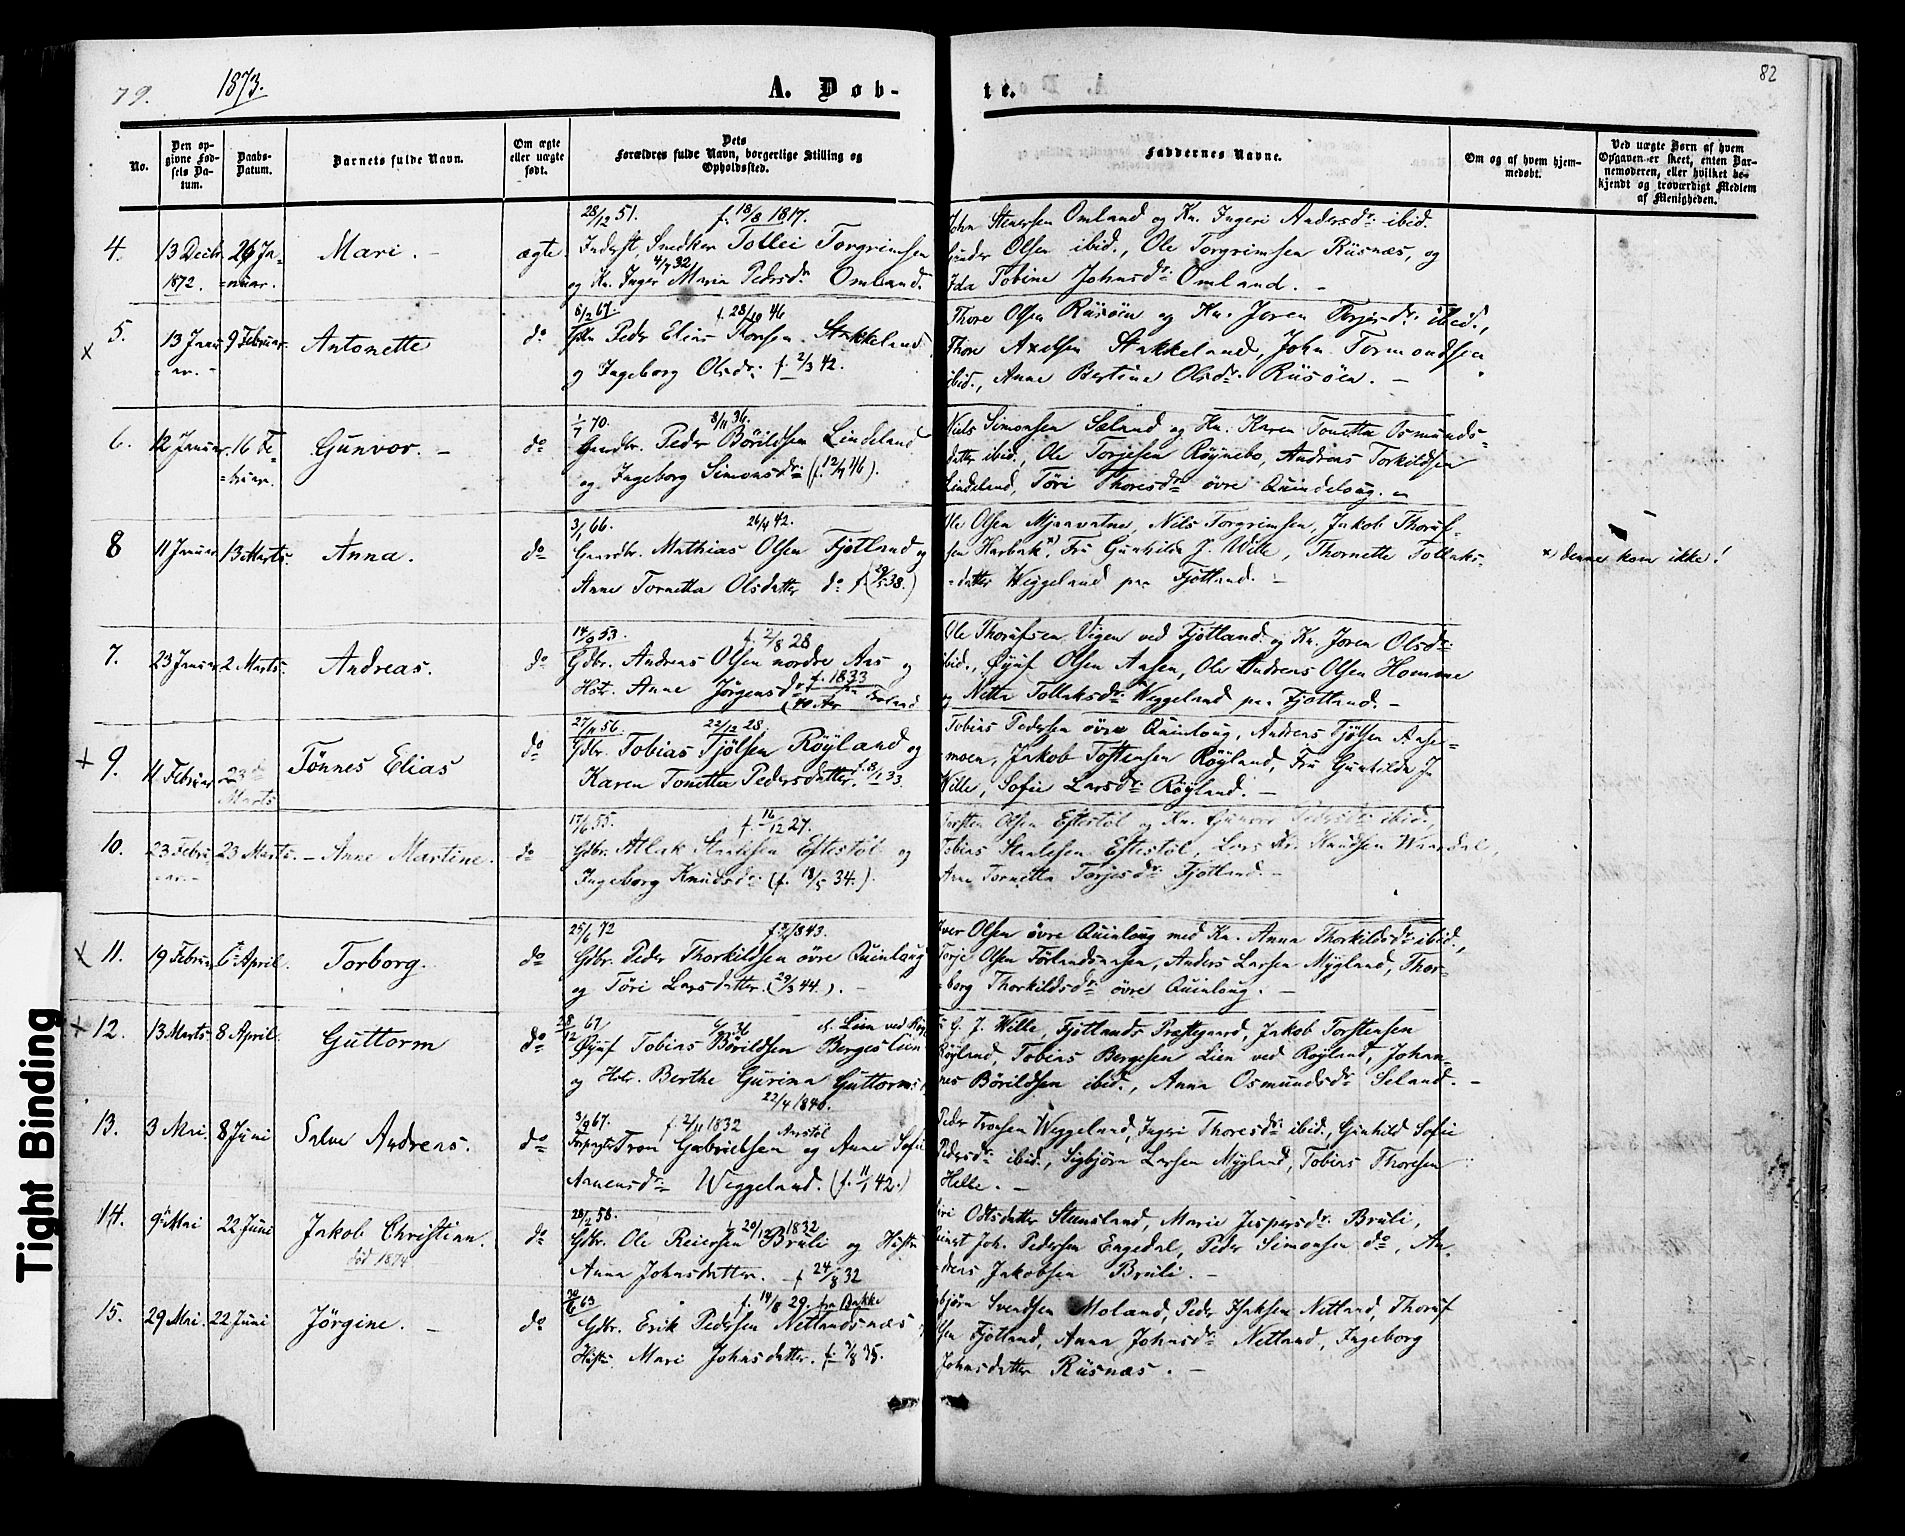 79.
1873.
A. Døb-
te.
82
No.
Den op-
givne Fød-
sels Da-
tum.
Daabs-
Datum.
Barnets fulde Navn.
Om ægte
eller uægte
født.
Dets
Forældres fulde Navn, borgerlige Stilling og
Opholdssted.
Faddernes Navne.
Om og af hvem hjem-
medøbt.
Ved uægte Børn af hvem
Opgaven er skeet, enten Bar-
nemoderen, eller hvilket be-
kjendt og troværdigt Medlem
af Menigheden.
4.
13 Decbr
1872.
26 Ja-
nuar.
Mari. -
ægte
28/12 51. f. 18/8 1817.
Inderst, Snedker Tollei Torgrimsen
4/7 32
og Kn. Inger Maria Pedersdr Omland.
John Stenersen Omland og Kn. Ingeri Andersdr ibid.
Gunder Olsen ibid., Ole Torgrimsen Riisnæs, og
Ida Tobine Johnsdr Omland. -
x 5.
13 Janu-
ar. -
9 Februar.
Antonette
do
6/2 67. f. 28/10 46
Peder Elias Thorsen Stakkeland
og Ingeborg Olsdr f. 2/3 42.
Thore Olsen Riisøen og Kn. Joren Torjesdr ibid.,
Thore Axelsen Stakkeland, John Tormondsen
ibid., Anne Bertine Olsdr Riisøen. -
6.
12 Januar.
16 Fe-
bruar.
Gunvor. -
do
1/7 70. 8/11 36.
Gaardbr. Peder Børildsen Lindeland
og Ingeborg Simonsdr (f. 12/9 46).
Niels Simonsen Sæland og Kn. Karen Tonetta Osmunds-
datter ibid., Ole Torjesen Røynebo, Andreas Torkildsen
Lindeland, Tøri Thoresdr øvre Quindloug.
8
11 Januar
13 Marts.
Anna.
do
3/1 66. 26/4 42.
Gaardbr. Mathias Olsen Fjotland og
Anne Tornetta Olsdatter do f. (29/5 38.)
Ole Olsen Mjaavatne, Nels Torgrimsen, Jakob Thoruf-
sen Harbak x), Fru Gunhilde J. Wille, Thornette Tollaks-
datter Weggeland paa Fjotland. -
x denne kom ikke!
7.
23 Januar
2 Marts.
Andreas.
do
14/9 53. f. 2/8 28
Gdbr. Andreas Olsen nordre Aas og
Hst. Anne Jørgensdr f. 1833
(40 Aar
Ole Thorufsen Vigen ved Fjotland og Kn. Joren Olsdr
ibid., Øyuf Olsen Aasen, Ole Andreas Olsen Homme
og Netta Tollaksdr Weggeland paa Fjotland. -
+ 9.
11 Februar
23de
Marts
Tønnes Elias
do
27/11 56. 22/12 28.
Gdbr. Tobias Tjølsen Røyland og
Karen Tonetta Pedersdatter. f. 8/1 33.
Tobias Pedersen øvre Quinloug, Andreas Tjølsen Aase-
moen, Jakob Toftensen Røyland, Fru Gunhilde J.
Wille, Sofie Larsdr Røyland. -
10.
23 Febru-
ar. -
23 Marts.
Anne Martine.
do
17/6 55. f. 16/12 27.
Gdbr. Atlak Staalesen Eftestøl og
Ingeborg Knudsdr (f. 18/5 34.).
Torsten Olsen Eftestøl og Kn. Gunvor Pedersdr ibid.,
Tobias Staalesen Eftestøl, Lars Kr. Knudsen Waardal,
Anne Tornetta Torjesdr Fjotland. -
x 11.
19 Februar
6te April.
Torborg.
do
25/6 72 1843.
Gdbr. Peder Thorkildsen øvre Quinlaug
og Tøri Larsdatter. (29/3 44.). -
Iver Olsen øvre Quinloug med Kn. Anna Thorkildsdr ibid.,
Torje Olsen Førlandsaasen, Anders Larsen Mygland, Thor-
borg Thorkildsdr øvre Quinloug. -
x 12.
13 Marts
8 April.
Guttorm
do
28/12 67 4/9 36 Lien ved Røy
Øyuf Tobias Børildsen Bergeslien
og Hstr. Berthe Gurina Guttorms
22/4 1840.
G. J. Wille, Fjotlands Præstegaard, Jakob Torstensen
Røyland, Tobias Bergesen Lien ved Røyland, Johan-
nes Børildsen ibid., Anna Osmundsdr Seland. -
13.
3 Mai.
8 Juni
Salve Andreas.
do
3/9 67. f. 2/11 1832 Aarstøl
Forpagter Tron Gabrielsen og Anne Sofie
Aanensdr Weggeland. (f. 11/1 42.)
Peder Tronsen Weggeland, Ingeri Thoresdr ibid., Gunhild Sofie
Pedersdr ibid., Sigbjørn Larsen Mygland, Tobias Thoresen
Helle. -
14.
9de Mai
22 Juni
Jakob Christian.
død 1874
do
28/2 58. f. 20/12 1832
Gdbr. Ole Reiersen Bruli og Hustru
Anna Johnsdatter. - f. 24/8 32
Odtsdatter Steensland, Marie Jespersdr Bruli,
Joh. Pedersen Engedal, Peder Simonsen do, An-
dreas Jakobsen Bruli. -
15.
29 Mai.
22 Juni
Jørgine. -
do
20/6 63 f. 14/8 29. fra Bakke
Gdbr. Erik Pedersen Netlandsnæs
Hustr. Mari Johnsdatter. f. 7/8 35.
Svendsen Moland, Peder Isaksen Netland, Thoruf
Fjotland, Anna Johnsdr Netland, Ingeborg
Johnsdatter Riisnæs. -
Tight Binding